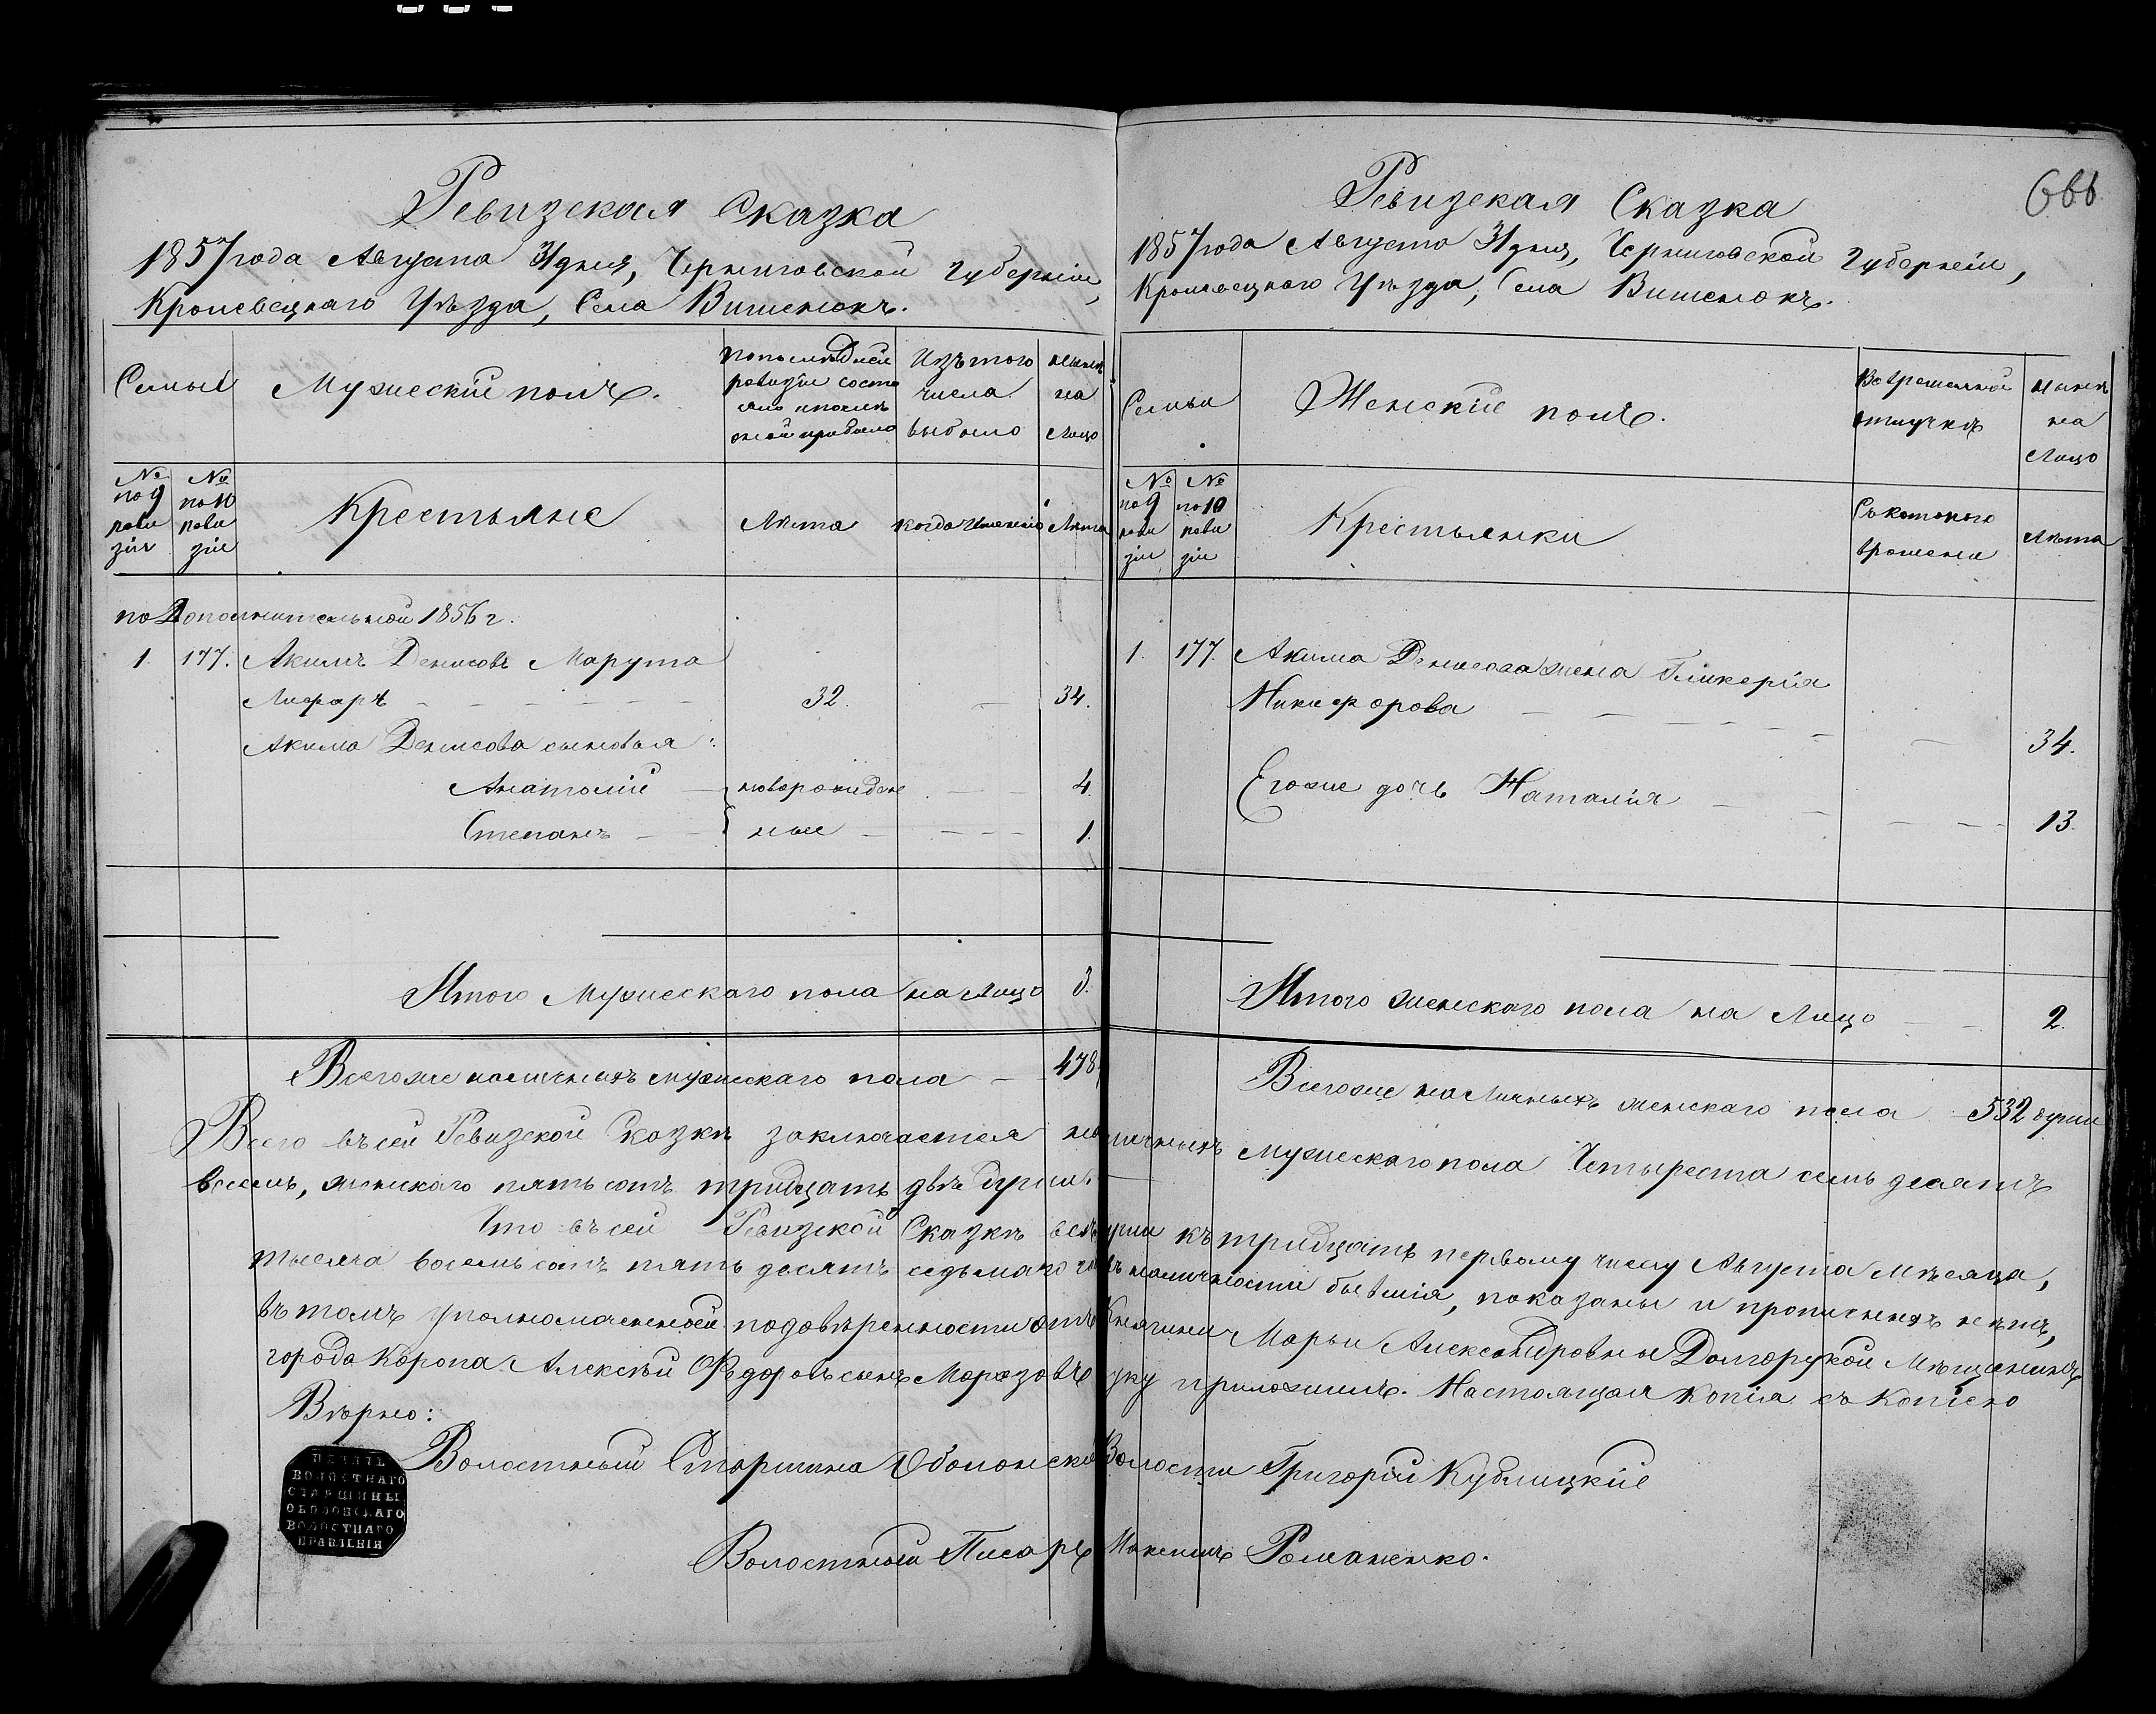 Ревизская Сказка
1857 года Августа 31 дня, Черниговской губерніи,
Кролевецкаго Уѣзда, Села Вишенокъ.
Семьи
Мужескій полъ.
по послѣдней ревизіи состояло и послѣ оной прибыло
Изъ того числа выбыло
нынѣ на лицо
№ по 9 ревизіи
№ по 10 ревизіи
Крестьяне
Лѣта
когда именно
Лѣта
по Дополнительной 1856 г.
1. 177. Акимъ Денисовъ Марута
Лифарь 32. 34.
Акима Денисова сыновья:
Анатолій новорожден 4.
Степанъ ные 1.
Итого Мужескаго пола на лицо 3.
Всего же наличныхъ мужескаго пола 478
Ревизская Сказка
666.
1857 года Августа 31 дня, Черниговской Губерніи,
Кролевецкаго Уѣзда, Села Вишенокъ.
Семьи
Женскій полъ.
Во временной отлучкѣ
нынѣ на лицо
№ по 9 ревизіи
№ по 10 ревизіи
Крестьянки
Съ котораго времени
Лѣта
1. 177. Акима Денисова жена Гликерія
Никифорова 34.
Его же дочь Наталія 13.
Итого женскаго пола на Лицо 2.
Всего же наличныхъ женскаго пола 532 души
Всего въ сей Ревизской Сказкѣ заключается наличныхъ Мужескаго пола Четыреста семь десятъ
восемь, женскаго пять сотъ тридцать двѣ души.
Что въ сей Ревизской Сказкѣ всѣ души къ тридцать первому числу Августа мѣсяца,
тысяча восемь сотъ пять десятъ седьмаго въ наличности бывшія, показаны и прописныхъ нѣтъ,
въ томъ уполномоченной по довѣренности отъ Княгини Марьи Александровны Долгорукой Мѣщанинъ
города Коропа Алексѣй Федоровъ сынъ Морозовъ руку приложилъ. Настоящая копія съ копіею
Вѣрно:
Волостный Старшина Оболонской Волости Григорій Кублицкій
Волостный Писарь Максимъ Романенко.
ПЕЧАТЬ
ВОЛОСТНАГО
СТАРШИНЫ
ОБОЛОНСКАГО
ВОЛОСТНАГО
ПРАВЛЕНІЯ